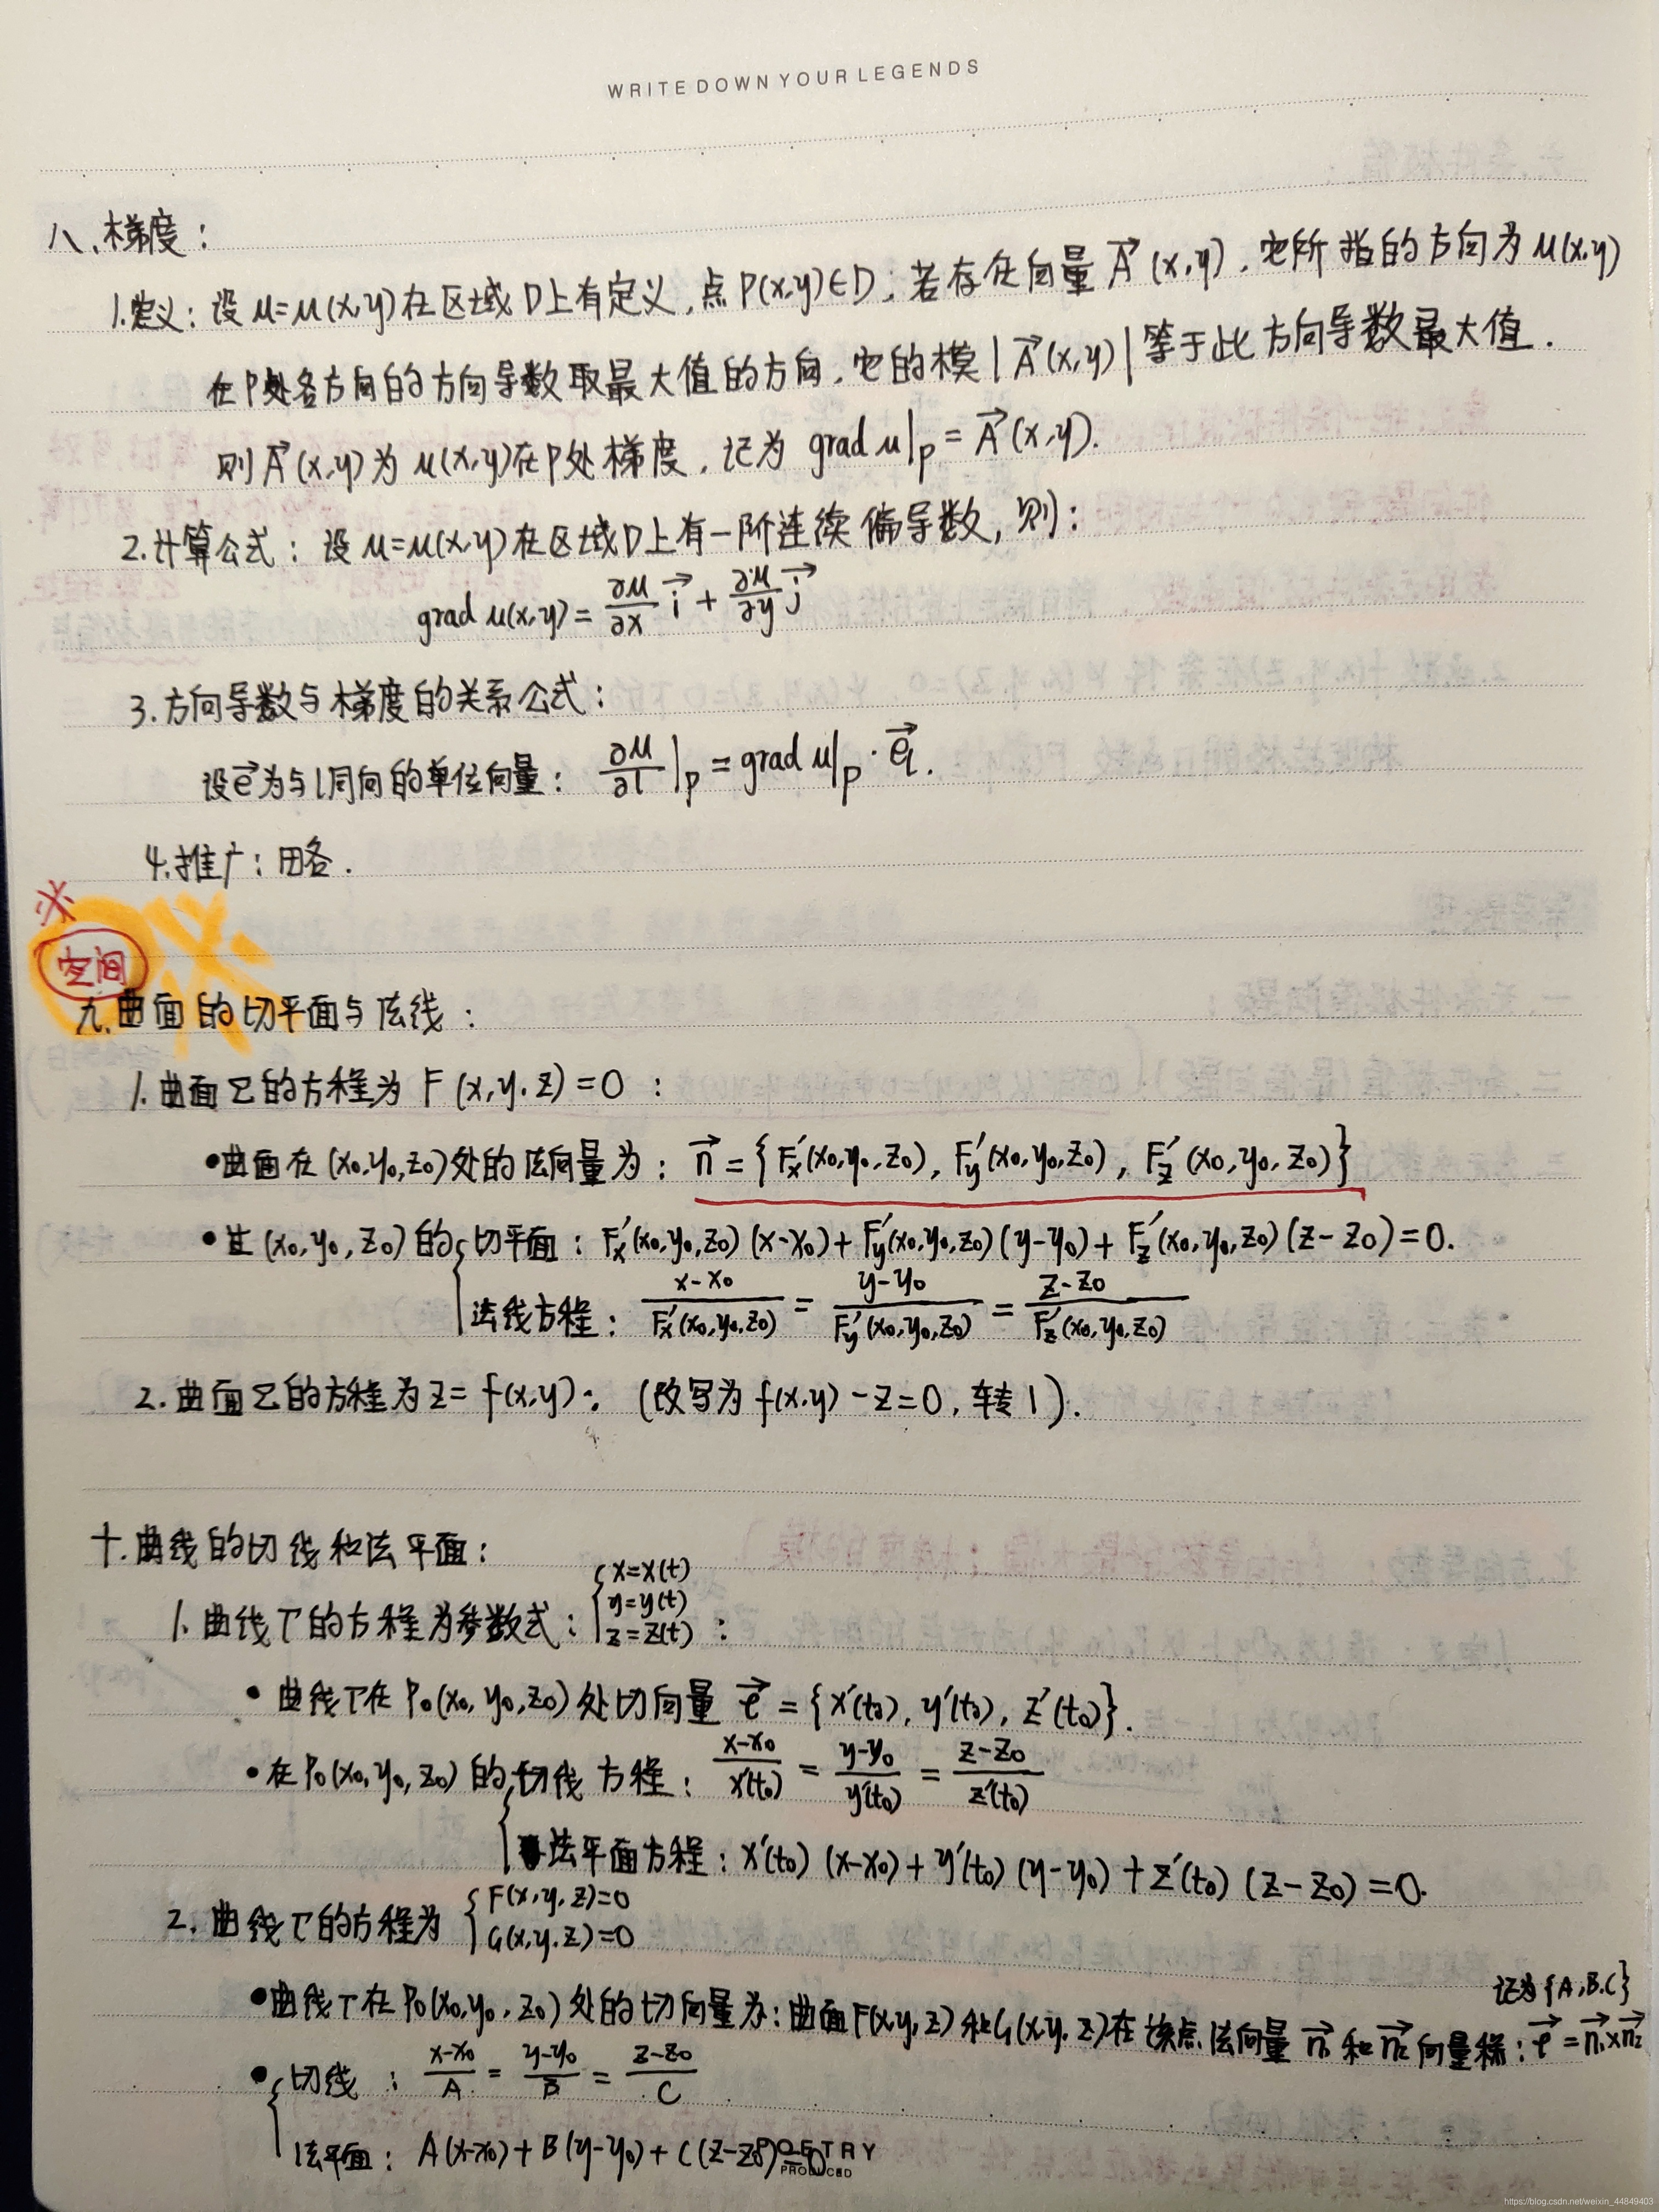 WRITE DOWN YOUR LEGENDS
八、梯度：
1.定义：设u=u(x,y)在区域D上有定义,点P(x,y)∈D,若存在向量A⃗(x,y),它所指的方向为u(x,y)
在P处各方向的方向导数取最大值的方向,它的模|A⃗(x,y)|等于此方向导数最大值.
则A⃗(x,y)为u(x,y)在P处梯度,记为 grad u|p = A⃗(x,y).
2.计算公式：设u=u(x,y)在区域D上有一阶连续偏导数,则：
grad u(x,y) = ∂u/∂x i⃗ + ∂u/∂y j⃗
3.方向导数与梯度的关系公式：
设e⃗为与l同向的单位向量： ∂u/∂l|p = grad u|p · e⃗l.
4.推广：田各.
※
空间
九.曲面的切平面与法线：
1.曲面Σ的方程为 F(x,y,z)=0：
•曲面在(x₀,y₀,z₀)处的法向量为： n⃗ = {F′x(x₀,y₀,z₀), F′y(x₀,y₀,z₀), F′z(x₀,y₀,z₀)}
•过(x₀,y₀,z₀)的{切平面： F′x(x₀,y₀,z₀)(x-x₀)+F′y(x₀,y₀,z₀)(y-y₀)+F′z(x₀,y₀,z₀)(z-z₀)=0.
法线方程： (x-x₀)/F′x(x₀,y₀,z₀) = (y-y₀)/F′y(x₀,y₀,z₀) = (z-z₀)/F′z(x₀,y₀,z₀)
2.曲面Σ的方程为z=f(x,y)：(改写为f(x,y)-z=0,转1).
十.曲线的切线和法平面：
1.曲线T的方程为参数式：{x=x(t)
y=y(t)
z=z(t)：
•曲线T在P₀(x₀,y₀,z₀)处切向量 τ⃗ = {x′(t₀),y′(t₀),z′(t₀)}.
•在P₀(x₀,y₀,z₀)的{切线方程： (x-x₀)/x′(t₀) = (y-y₀)/y′(t₀) = (z-z₀)/z′(t₀)
法平面方程：x′(t₀)(x-x₀)+y′(t₀)(y-y₀)+z′(t₀)(z-z₀)=0.
2.曲线T的方程为{F(x,y,z)=0
G(x,y,z)=0
记为{A,B,C}
•曲线T在P₀(x₀,y₀,z₀)处的切向量为：曲面F(x,y,z)和G(x,y,z)在该点法向量n⃗₁和n⃗₂向量积：τ⃗=n⃗₁×n⃗₂
•{切线： (x-x₀)/A = (y-y₀)/B = (z-z₀)/C
法平面：A(x-x₀)+B(y-y₀)+C(z-z₀)=0
POETRY
PRODUCED
https://blog.csdn.net/weixin_44849403